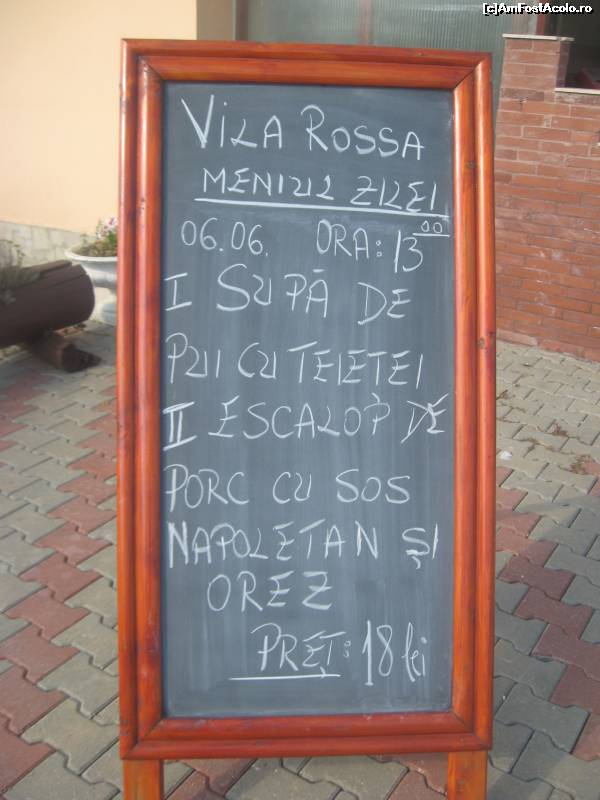 [c]AmFostAcolo.ro
VILA ROSSA
MENIUL ZILEI
06.06. ORA: 13 00
I SUPĂ DE
PUI CU TEIEȚEI
II ESCALOP DE
PORC CU SOS
NAPOLETAN ȘI
OREZ
PREȚ: 18 lei
[c]AmFostAcolo.ro